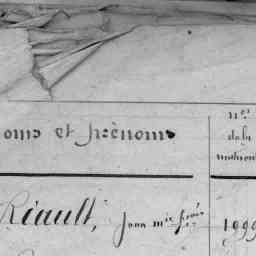 oms et Prénoms
Nos
de la
matricul
Riault, Jean mie frçois 1999